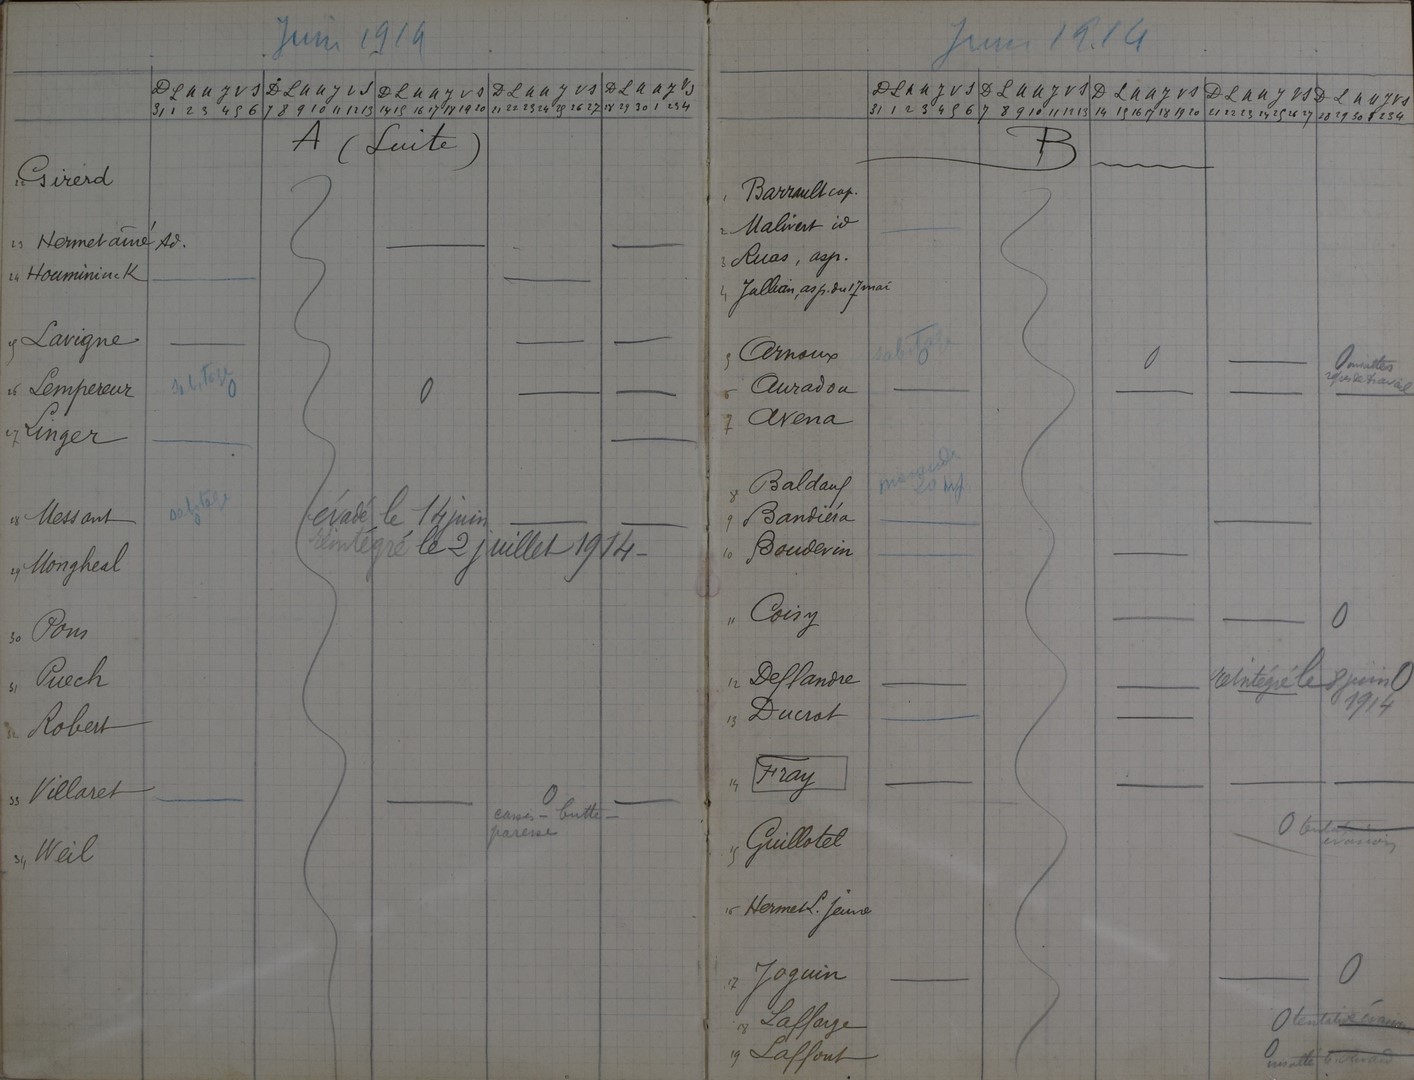 Juin 1914
D L M M J V S D L M M J V S D L M M J V S D L M M J V S D L M M J V S
31 1 2 3 4 5 6 7 8 9 10 11 12 13 14 15 16 17 18 19 20 21 22 23 24 25 26 27 28 29 30 1 2 3 4
A (Suite)
22 Girerd
23 Hermet aîné Ad.
24 Houmininck
25 Lavigne
26 Lempereur sabotage 0 0
27 Linger
28 Messant sabotage évadé le 14 juin
réintégré le 2 juillet 1914
29 Mongheal
30 Pons
31 Puech
32 Robert
33 Villaret 0
butte
paresse
34 Weil
Juin 1914
D L M M J V S D L M M J V S D L M M J V S D L M M J V S D L M M J V S
31 1 2 3 4 5 6 7 8 9 10 11 12 13 14 15 16 17 18 19 20 21 22 23 24 25 26 27 28 29 30 1 2 3 4
B
1 Barrault cap.
2 Malivert id
3 Ruas, asp.
4 Jallian, asp. du 17 mai
5 Arnoux sabotage 0 0 0 insultes
refus de travail
6 Auradou
7 Avena
8 Baldauf maraude
9 Bandiéra
10 Boudevin
11 Coisy 0
12 Deflandre réintégré le 8 juin 0
1914
13 Ducrot
14 Fray
15 Guillotel 0 tentative
évasion
16 Hermet L. jeune
17 Joguin 0
18 Laffarge 0 tentative évasion
19 Laffont 0